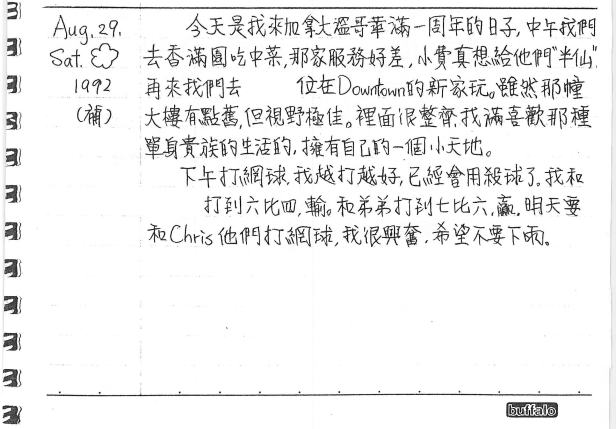 Aug. 29.
Sat.
1992
(補)
今天是我來加拿大溫哥華滿一周年的日子,中午我們
去香滿園吃中菜,那家服務好差,小費真想給他們"半仙".
再來我們去 位在Downtown的新家玩。雖然那幢
大樓有點舊,但視野極佳。裡面很整齊,我滿喜歡那種
單身貴族的生活的,擁有自己的一個小天地。
下午打網球,我越打越好,已經會用殺球了。我和
打到六比四,輸。和弟弟打到七比六,贏.明天要
和Chris他們打網球,我很興奮.希望不要下雨。
buffalo